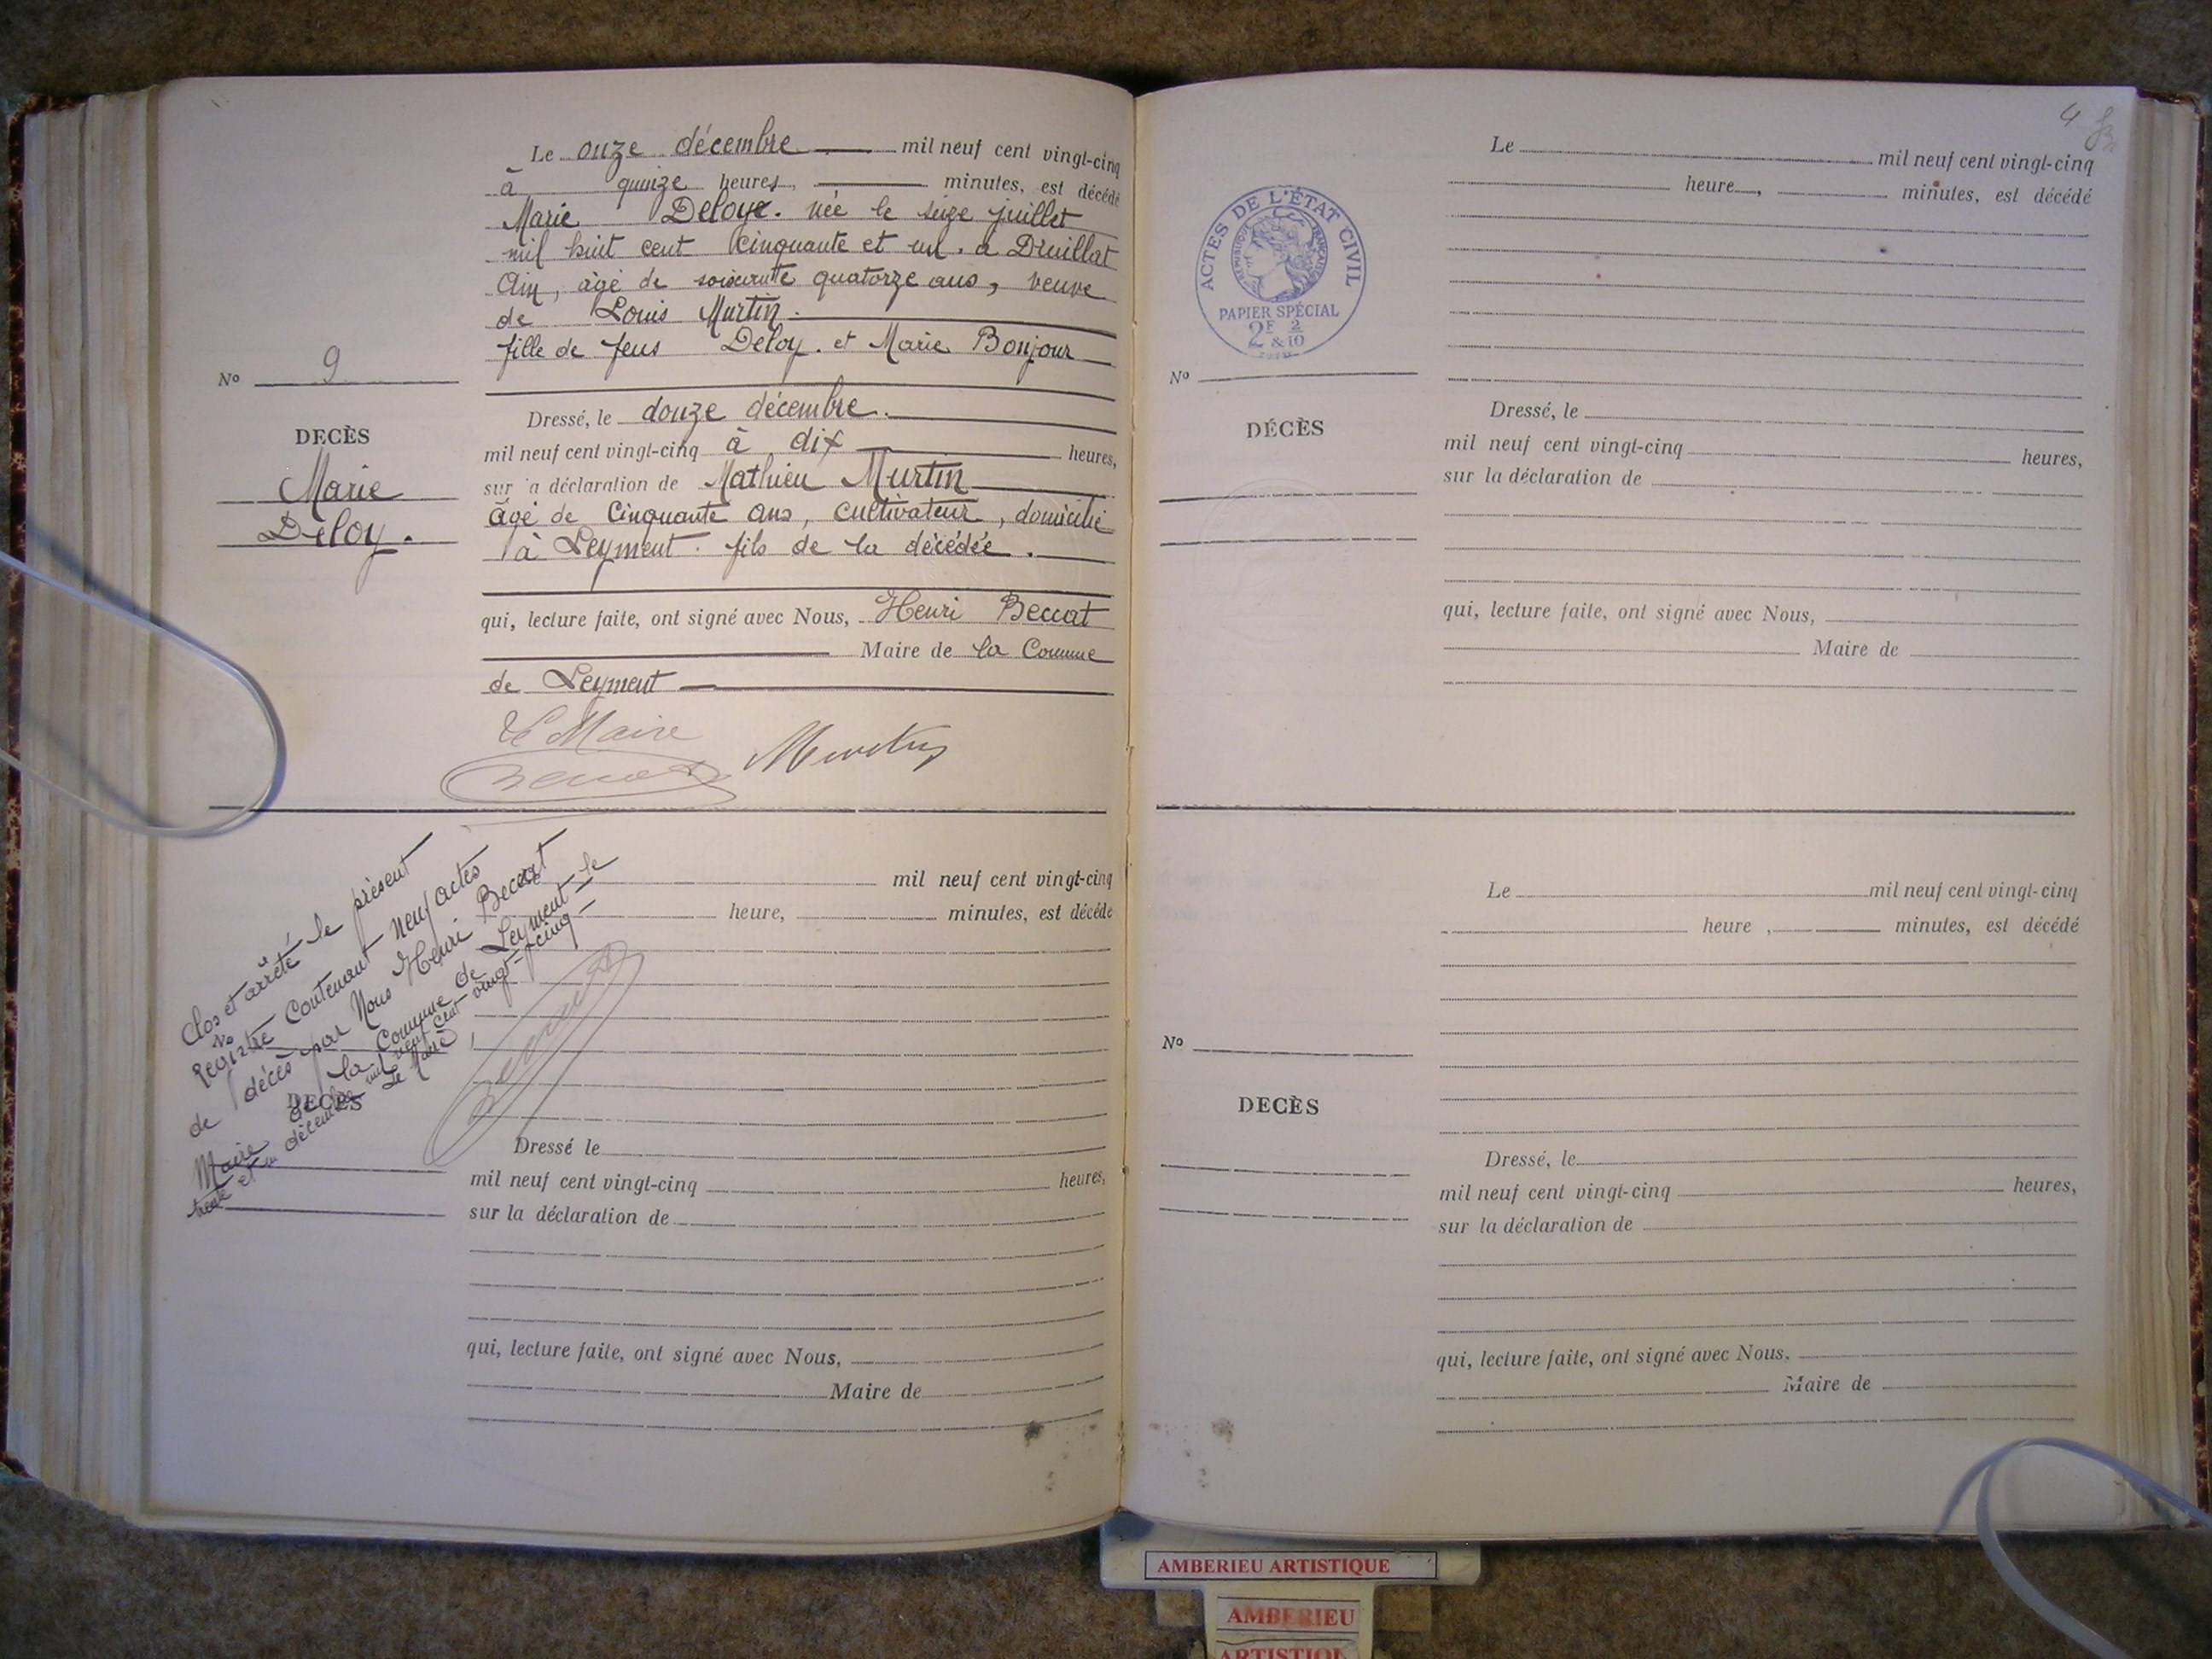 Le onze décembre mil neuf cent vingt-cinq
à quinze heures, minutes, est décédé
Marie Deloye. née le seize juillet
mil huit cent cinquante et un. à Druillat
Ain, âgé de soixante quatorze ans, veuve
de Louis Murtin.
fille de feus Deloy. et Marie Bonjour
No 9
DECÈS
Marie
Deloy.
Dressé, le douze décembre.
mil neuf cent vingt-cinq à dix heures,
sur la déclaration de Mathieu Murtin
âgé de Cinquante ans, cultivateur, domicilié
à Leyment. fils de la décédée.
qui, lecture faite, ont signé avec Nous, Henri Beccat
Maire de la Commune
de Leyment
Le Maire
Beccat Murtin
Clos et arrêté le présent
Registre Contenant neuf actes
de décès par Nous Henri Beccat
Maire de la Commune de Leyment le
trente et un décembre mil neuf cent vingt-cinq
Le Maire
Beccat
mil neuf cent vingt-cinq
heure, minutes, est décédé
No
DECÈS
Dressé le
mil neuf cent vingt-cinq heures,
sur la déclaration de
qui, lecture faite, ont signé avec Nous,
Maire de
4
Le mil neuf cent vingt-cinq
heure, minutes, est décédé
ACTES DE L'ÉTAT CIVIL
RÉPUBLIQUE FRANÇAISE
PAPIER SPÉCIAL
2F 2
& 10
No
DÉCÈS
Dressé, le
mil neuf cent vingt-cinq heures,
sur la déclaration de
qui, lecture faite, ont signé avec Nous,
Maire de
Le mil neuf cent vingt-cinq
heure , minutes, est décédé
No
DECÈS
Dressé, le
mil neuf cent vingt-cinq heures,
sur la déclaration de
qui, lecture faite, ont signé avec Nous.
Maire de
AMBERIEU ARTISTIQUE
AMBERIEU
ARTISTIQUE